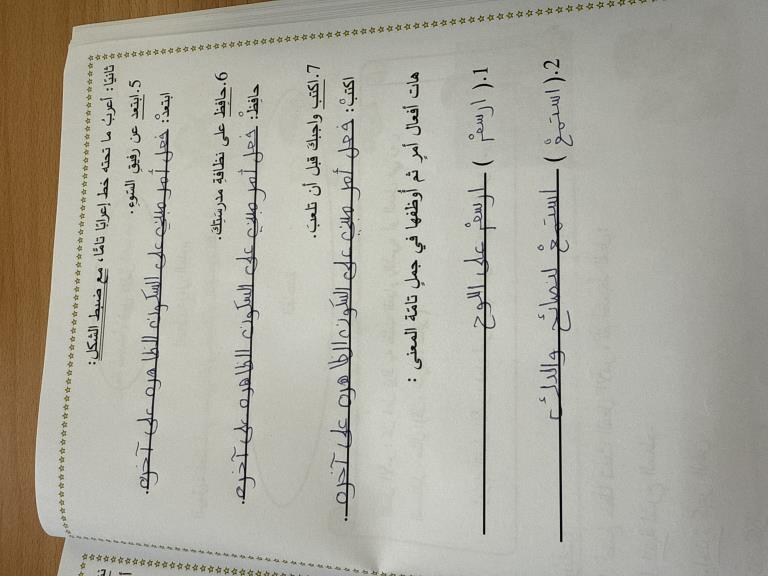 ثانيًا: أعرب ما تحته خط إعرابًا تامًّا، مع ضبط الشكل:
5. ابتعد عن رفيق السّوء.
ابتعدْ: فعل أمر مبني على السكون الظاهره على آخره.
6. حافِظ على نظافةِ مدرسَتِكَ.
حافِظْ: فعل أمر مبني على السكون الظاهره على آخره.
7. اكتب واجبكَ قبل أن تلعبَ.
اكتبْ: فعل أمر مبني على السكون الظاهره على آخره.
هات أفعال أمرٍ ثم أوظفها في جملٍ تامّة المعنى :
1. ( ارسمْ ) ارسمْ على اللوح
2. ( استمعْ ) استمعْ لنصائح